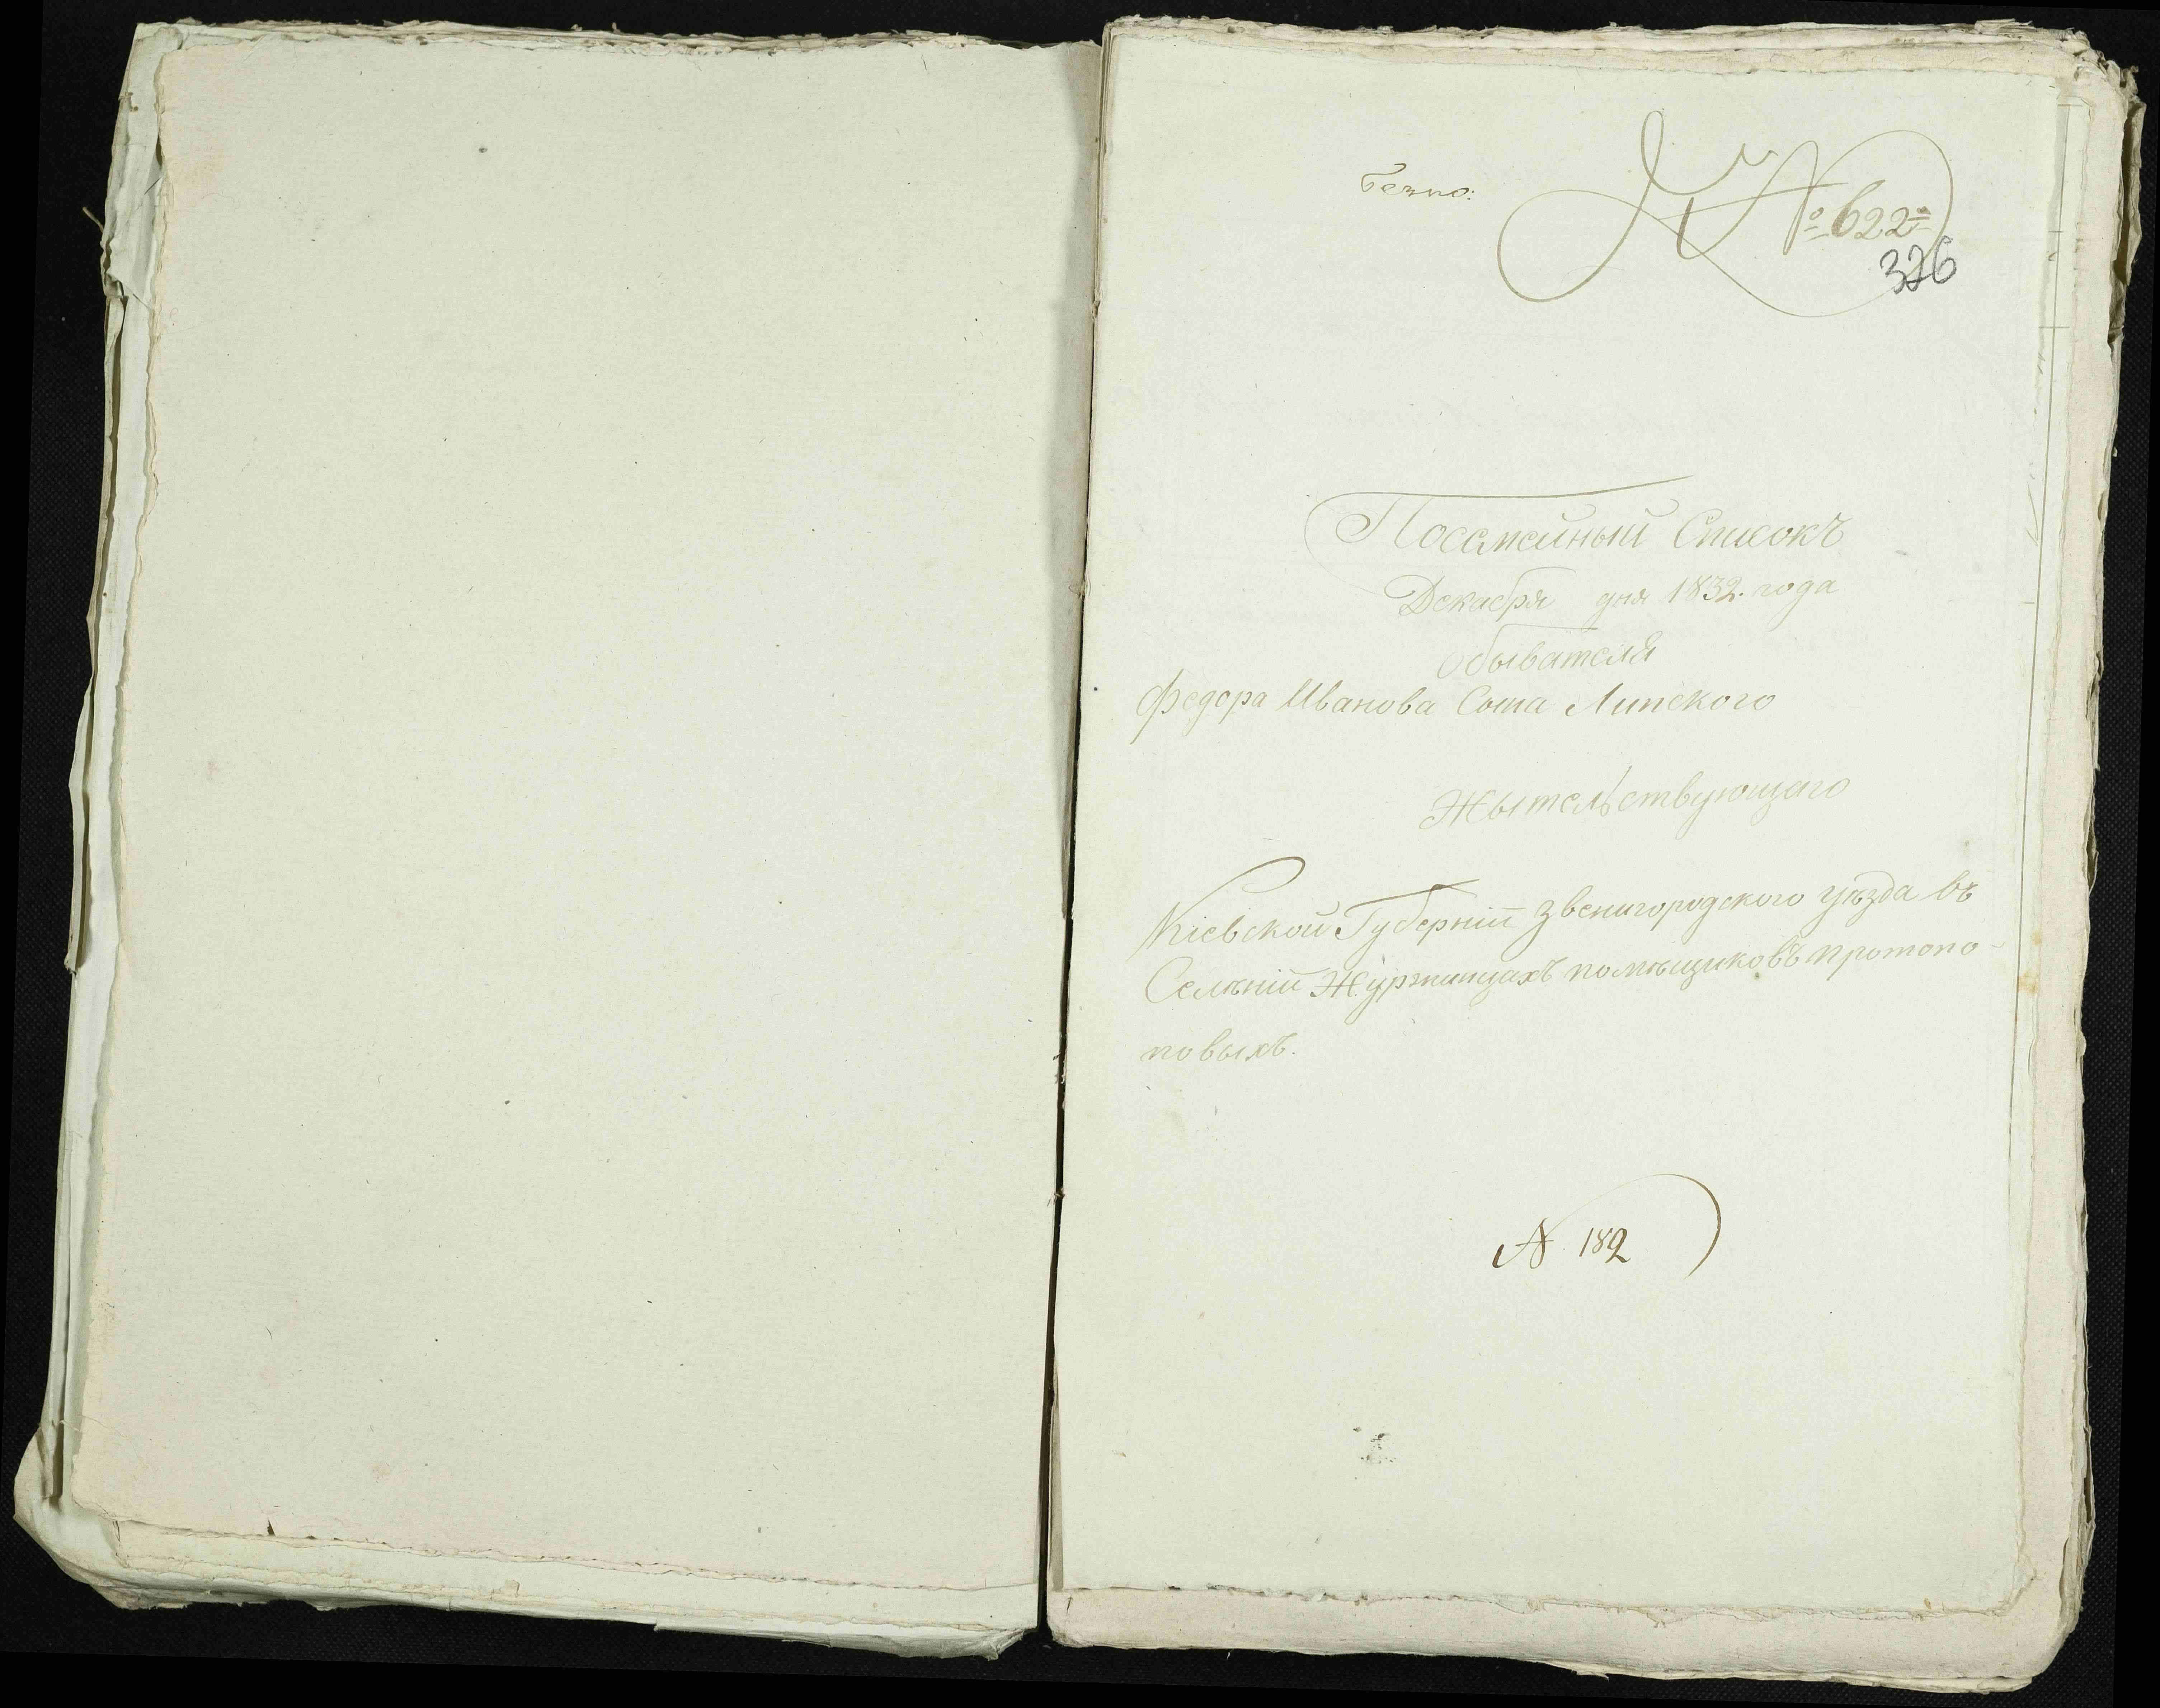 № 622
376
Посемейный Списокъ
Декабря дня 1832. года
обывателя
Федора Иванова Сына Липского
Жытельствующаго
Кіевской Губерніи Звенигородского уѣзда въ
Селѣніи Журжинцахъ помѣщиковъ протопо-
повыхъ.
№ 182